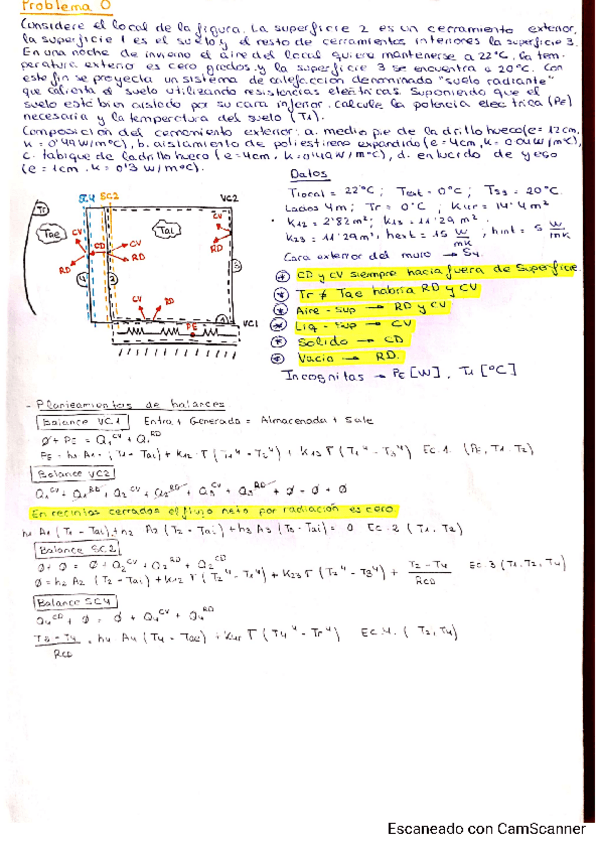 Problema 0
Considere el local de la figura. La superficie 2 es un cerramiento exterior,
la superficie 1 es el suelo y el resto de cerramientos interiores la superficie 3.
En una noche de invierno el aire del local quiere mantenerse a 22°C, la tem-
peratura exterior es cero grados y la superficie 3 se encuentra a 20°C. Con
este fin se proyecta un sistema de calefacción denominado "suelo radiante"
que calienta el suelo utilizando resistencias eléctricas. Suponiendo que el
suelo está bien aislado por su cara inferior, calcule la potencia eléctrica (PE)
necesaria y la temperatura del suelo (T1).
Composición del cerramiento exterior: a. medio pie de ladrillo hueco (e = 12cm,
k = 0'49 W/m°C), b. aislamiento de poliestireno expandido (e = 4cm,
c. tabique de ladrillo hueco (e = 4cm, k = 0'49 W/m°C), d. enlucido de yeso
(e = 1cm, k = 0'3 W/m°C).
Datos
Tlocal = 22°C ; Text = 0°C ; TS3 = 20°C.
Lados 4m ; Tr = 0°C , K4r = 14'4 m²
K12 = 2'82 m² ; K13 = 11'29 m²
K23 = 11'29 m² ; hext = 15 W/mK , hint = 5 W/mK
Cara exterior del muro → S4.
* CD y CV siempre hacia fuera de superficie
* Tr ≠ Tae habría RD y CV
* Aire - sup → RD y CV
* Liq - sup → CV
* Sólido → CD
* Vacío → RD.
Incógnitas → PE [W] , T1 [°C]
Tr
Tae
SC4
SC2
VC2
Tai
CV
CD
CV
RD
RD
CV
RD
CV
RD
4
2
3
1
VC1
PE
- Planteamientos de balances
Balance VC1 Entra + Generada = Almacenada + Sale
Ø + PE = Q1^CV + Q1^RD
PE = h1 A1 (T1 - Tai) + K12 σ (T1⁴ - T2⁴) + K13 σ (T1⁴ - T3⁴) Ec.1 (PE, T1, T2)
Balance VC2
Q1^CV + Q1^RD + Q2^CV + Q2^RD + Q3^CV + Q3^RD + Ø = Ø + Ø
En recintos cerrados el flujo neto por radiación es cero.
h1 A1 (T1 - Tai) + h2 A2 (T2 - Tai) + h3 A3 (T3 - Tai) = 0 Ec.2 (T1, T2)
Balance SC2
Ø + Ø = Ø + Q2^CV + Q2^RD + Q2^CD
Ø = h2 A2 (T2 - Tai) + K12 σ (T2⁴ - T1⁴) + K23 σ (T2⁴ - T3⁴) + (T2 - T4)/RCD Ec.3 (T1, T2, T4)
Balance SC4
Q4^CD + Ø = Ø + Q4^CV + Q4^RD
h4 A4 (T4 - Tae) + K4r σ (T4⁴ - Tr⁴) Ec.4. ( T2, T4)
Escaneado con CamScanner